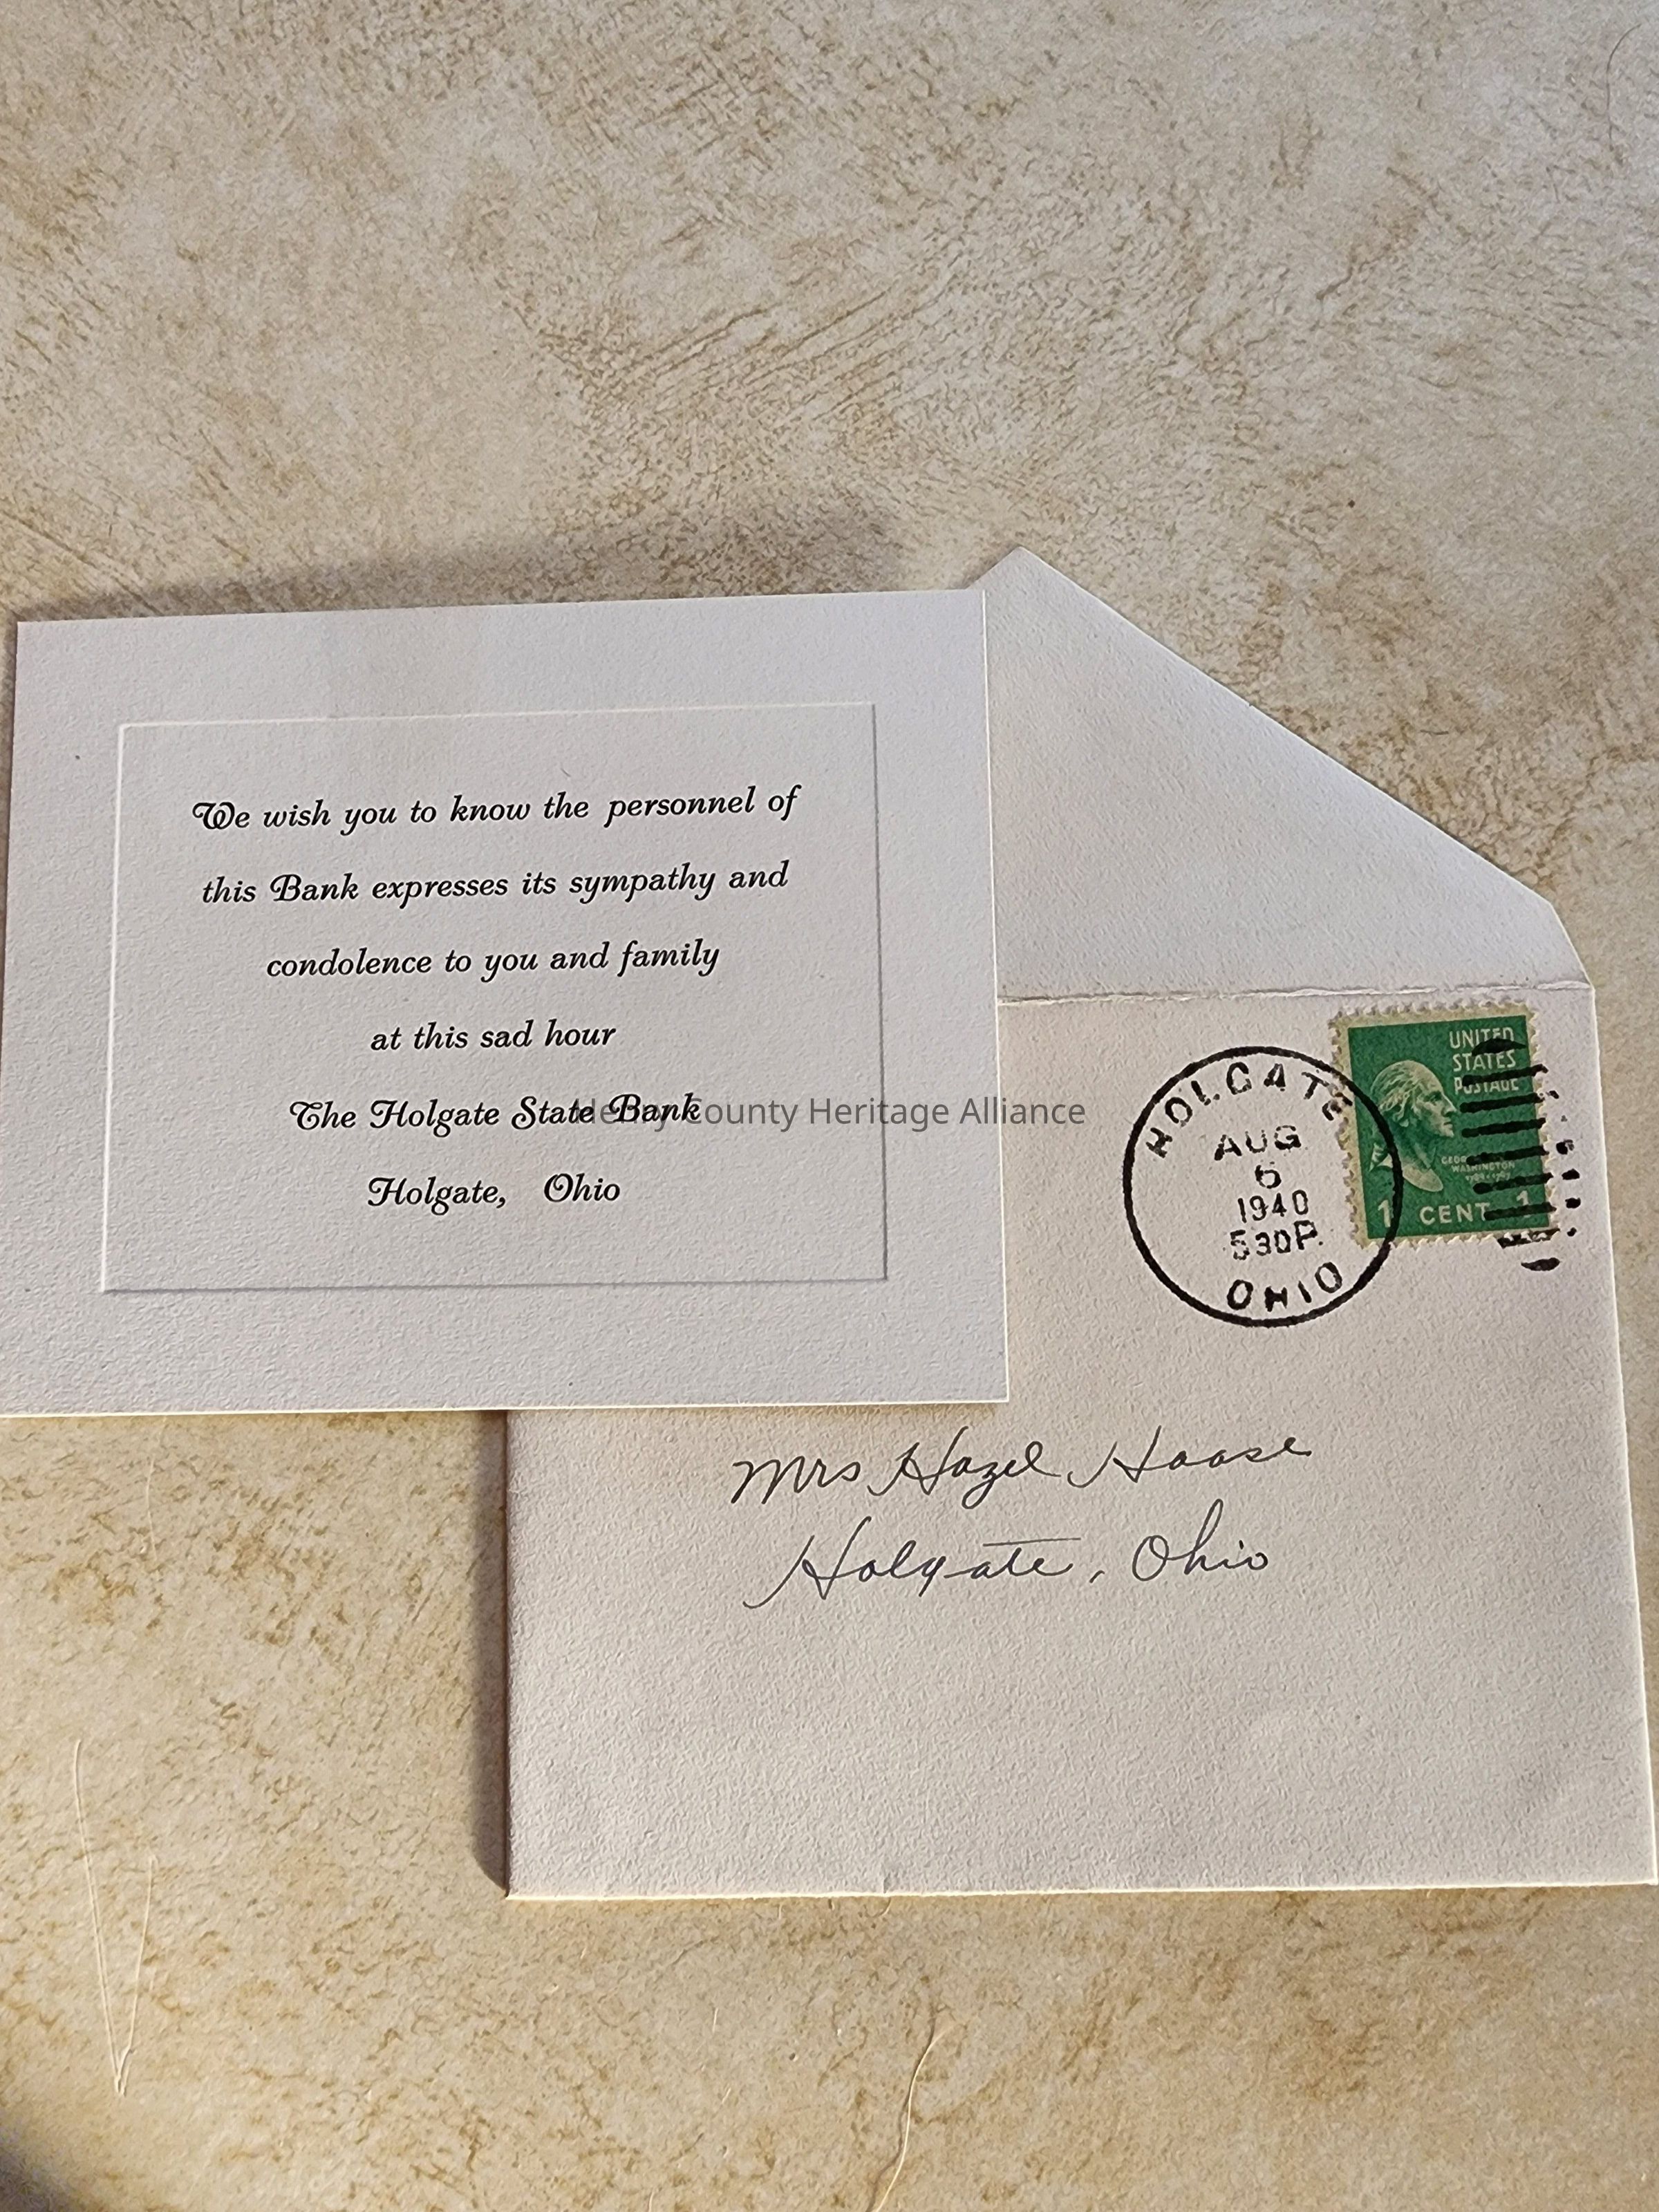 We wish you to know the personnel of
this Bank expresses its sympathy and
condolence to you and family
at this sad hour
The Holgate State Bank
Holgate, Ohio
Henry County Heritage Alliance
HOLGATE
AUG
6
1940
530P
OHIO
UNITED
STATES
POSTAGE
GEORGE
WASHINGTON
1 CENT 1
Mrs Hazel Haase
Holgate, Ohio